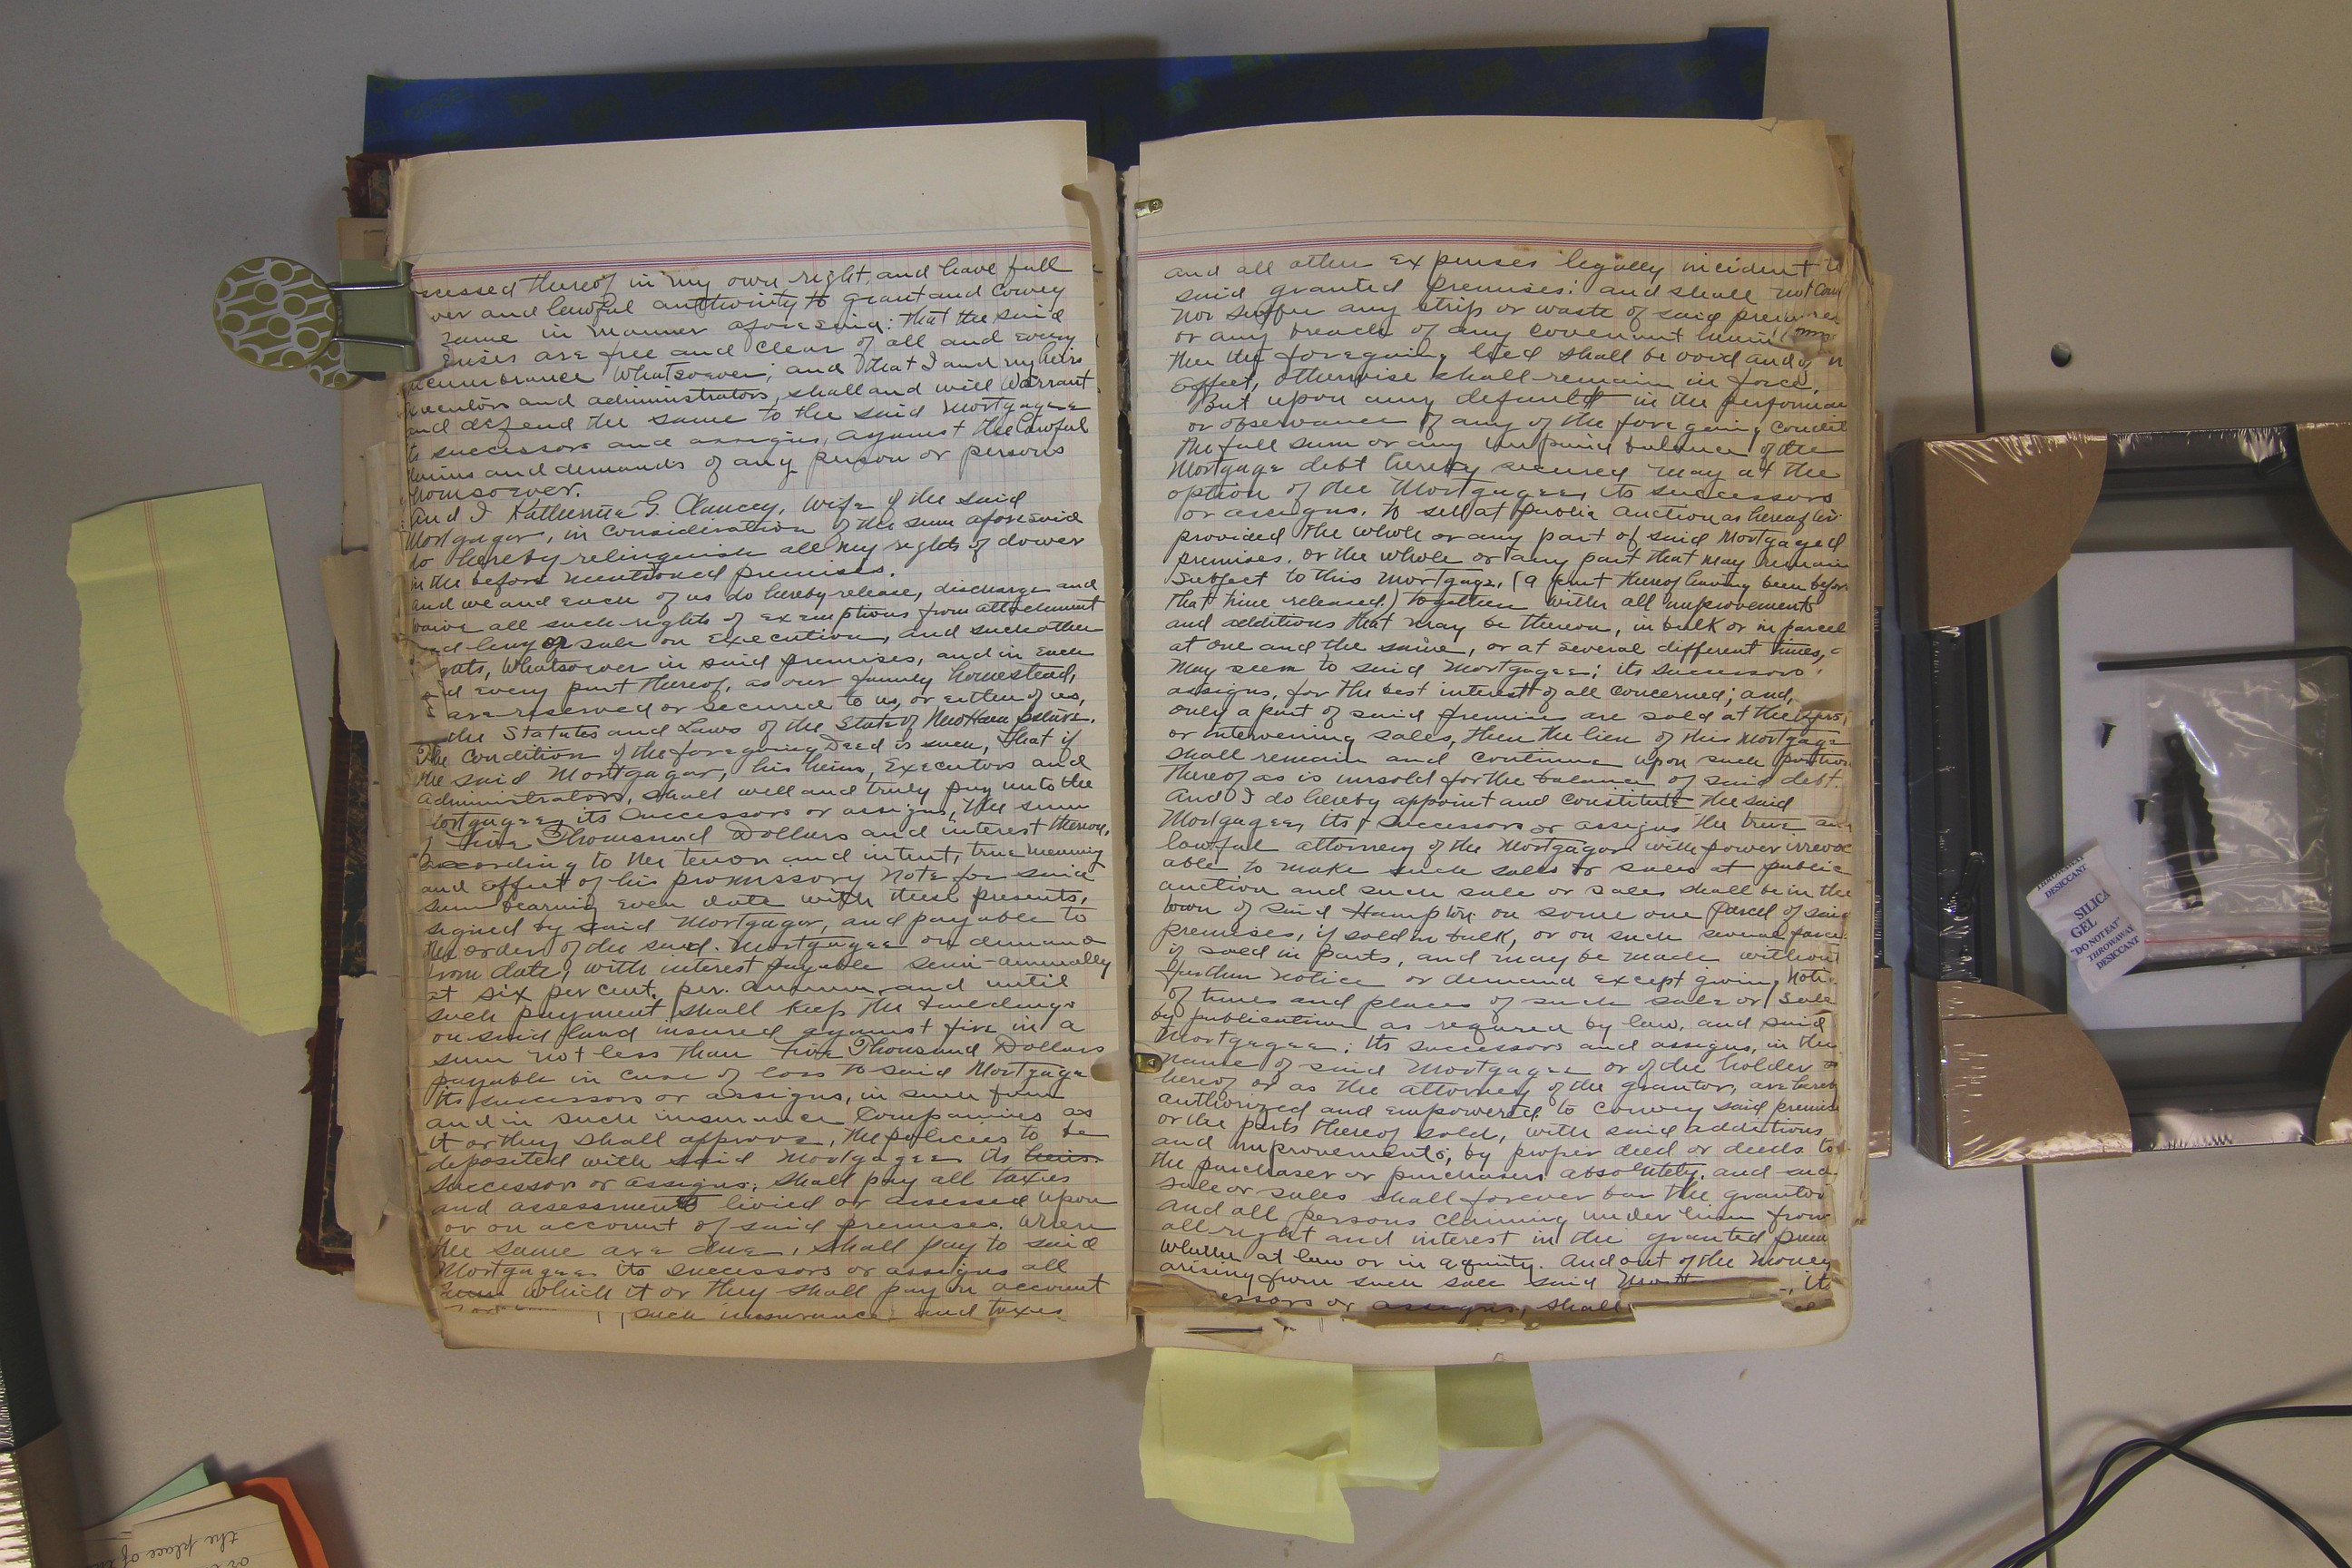 ssessed thereof in my own right, and have full
wer and lawful authority to grant and convey
same in manner aforesaid: that the said
emises are free and clear of all and every
ncumbrance whatsoever; and that I and my heirs
xecutors and administrators, shall and will warrant
and defend the same to the said Mortgagee
ts successors and assigns, against the lawful
laims and demands of any person or persons
whomsoever.
And I Katherine G. Clancey, wife of the said
Mortgagor, in consideration of the sum aforesaid
do hereby relinquish all my rights of dower
in the before mentioned premises.
And we and each of us do hereby release, discharge and
waive all such rights of exemptions from attachment
and levy or sale on execution, and such other
ghts, whatsoever in said premises, and in each
and every part thereof, as our family homestead,
are reserved or secured to us, or either of us,
the Statutes and Laws of the State of New Hampshire.
The Condition of the foregoing Deed is such, that if
the said Mortgagor, his heirs, executors and
administrators, shall well and truly pay unto the
Mortgagee, its successors or assigns, the sum
Five Thousand Dollars and interest thereon,
according to the tenor and intent, true meaning
and effect of his promissory note for said
sum bearing even date with these presents,
signed by said Mortgagor, and payable to
the order of the said Mortgagee on demand
from date, with interest payable semi-annually
at six per cent. per. annum, and until
such payment shall keep the buildings
on said land insured against fire in a
sum not less than Five Thousand Dollars
payable in case of loss to said Mortgage
its successors or assigns, in such form
and in such insurance Companies as
it or they shall approve, the policies to be
deposited with said Mortgagee its heirs
successor or assigns; shall pay all taxes
and assessments levied or assessed upon
or on account of said premises. When
the same are due, shall pay to said
Mortgagee its successors or assigns all
sums which it or they shall pay on account
such insurance and taxes
and all other expenses legally incident to
said granted premises: and shall not com
nor suffer any strip or waste of said premises
or any breach of any covenant herein
then the foregoing deed shall be void and of n
effect, otherwise shall remain in force.
But upon any default in the performan
or observance of any of the foregoing condit
the full sum or any unpaid balance of the
Mortgage debt hereby secured may at the
option of the Mortgagee, its successors
or assigns, to sell at public auction as hereafter
provided the whole or any part of said Mortgaged
premises, or the whole or any part that may remain
subject to this Mortgage, (a part thereof having been before
that time released.) together with all improvements
and additions that may be thereon, in bulk or in parcel
at one and the same, or at several different times,
may seem to said Mortgagee; its successors
assigns, for the best interest of all concerned; and,
only a part of said premises are sold at the
or intervening sales, then the lien of this Mortgage
shall remain and continue upon such portion
thereof as is unsold for the balance of said debt.
And I do hereby appoint and constitute the said
Mortgagee, its successors or assigns the true and
lawful attorney of the Mortgagor with power irrevoc
able to make such sales or sales at public
auction and such sale or sales shall be in the
town of said Hampton on some one parcel of said
premises, if sold in bulk, or on such several parce
if sold in parts, and may be made without
further notice or demand except giving noti
of times and places of such sale or sale
by publication as required by law. and said
Mortgagee; its successors and assigns, in the
name of said Mortgagee or of the holder
hereof or as the attorney of the grantor, are hereby
authorized and empowered to convey said premise
or the parts thereof sold, with said additions
and improvements, by proper deed or deeds to
the purchaser or purchasers absolutely, and suc
sale or sales shall forever bar the grantor
and all persons claiming under him from
all right and interest in the granted prem
whether at law or in equity. And out of the money
arising from such sale said its
essors or assigns, shall
THROWAWAY
DESICCANT
SILICA
GEL
"DO NOT EAT"
THROWAWAY
DESICCANT
the place of